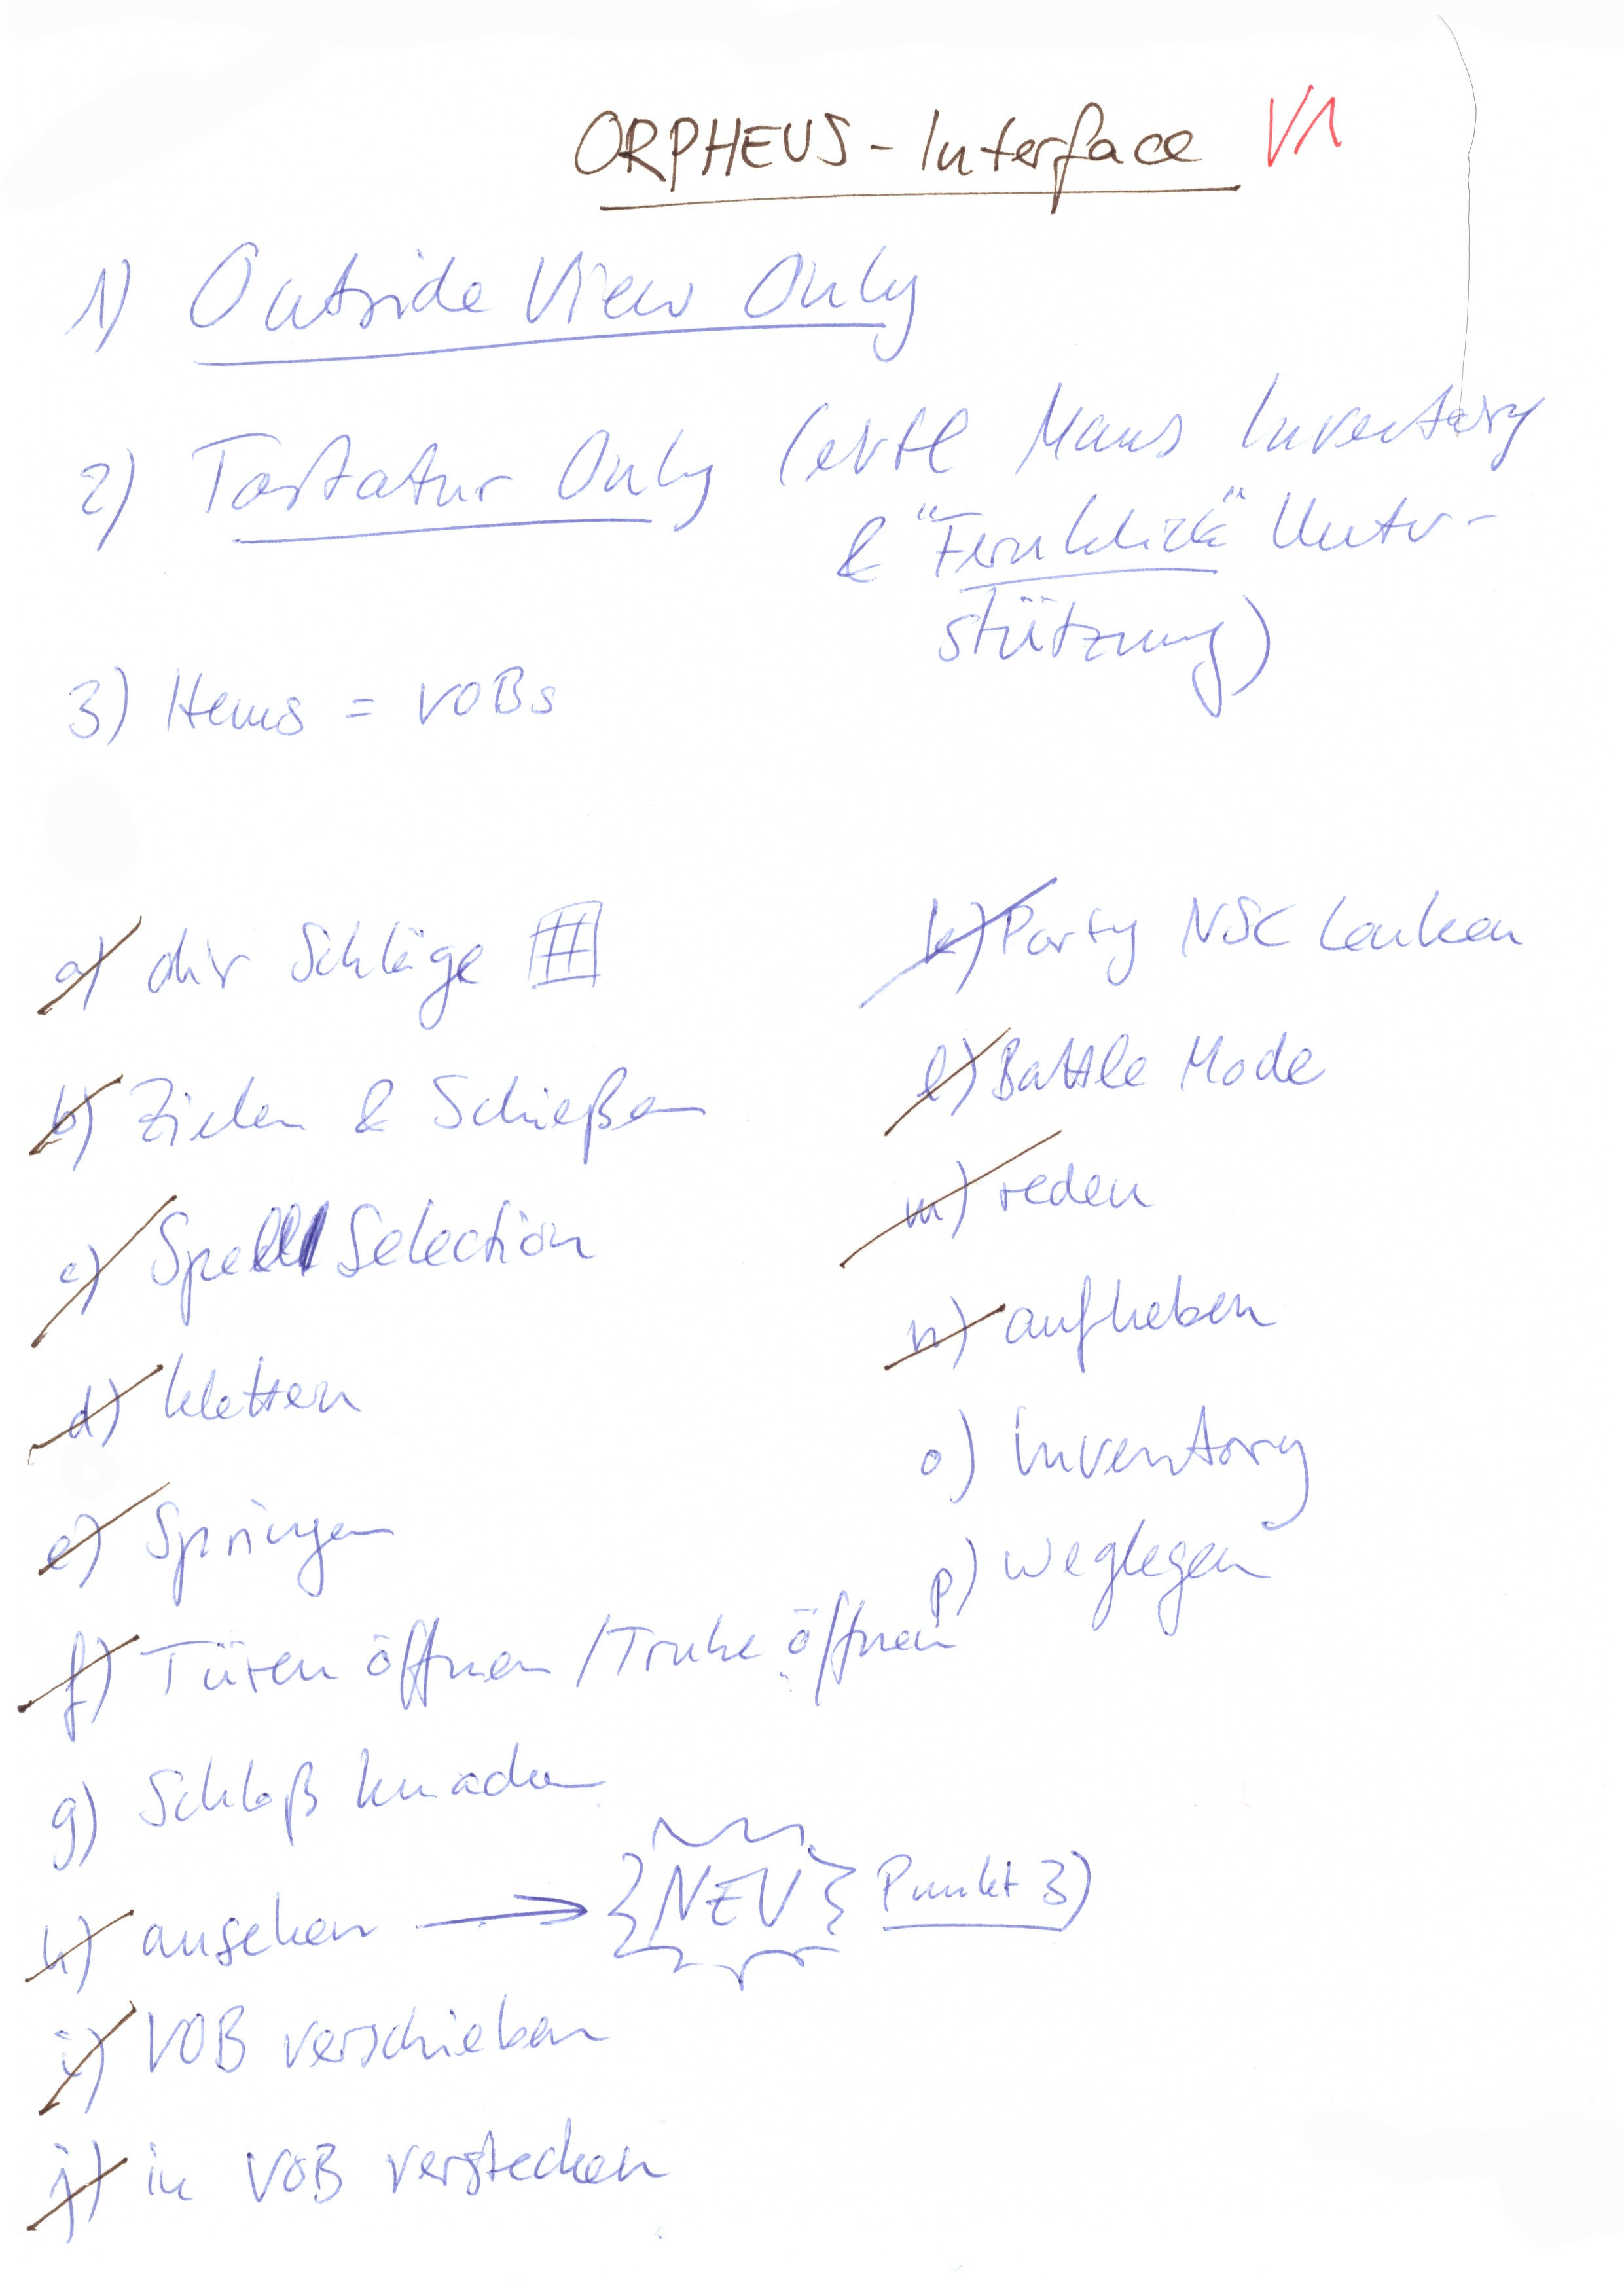 ORPHEUS - Interface V1
1) Outside View Only
2) Tastatur Only (evtl Maus Inventory
& "Fernklick" Unter-
stützung)
3) Items = VOBs
a) div Schläge
b) Zielen & Schießen
c) Spell Selection
d) klettern
e) Springen
f) Türen öffnen / Truhe öffnen
g) Schloß knacken
h) ansehen → NEU Punkt 3)
i) VOB verschieben
j) in VOB verstecken
k) Party NSC lenken
l) Battle Mode
m) reden
n) aufheben
o) Inventory
p) weglegen